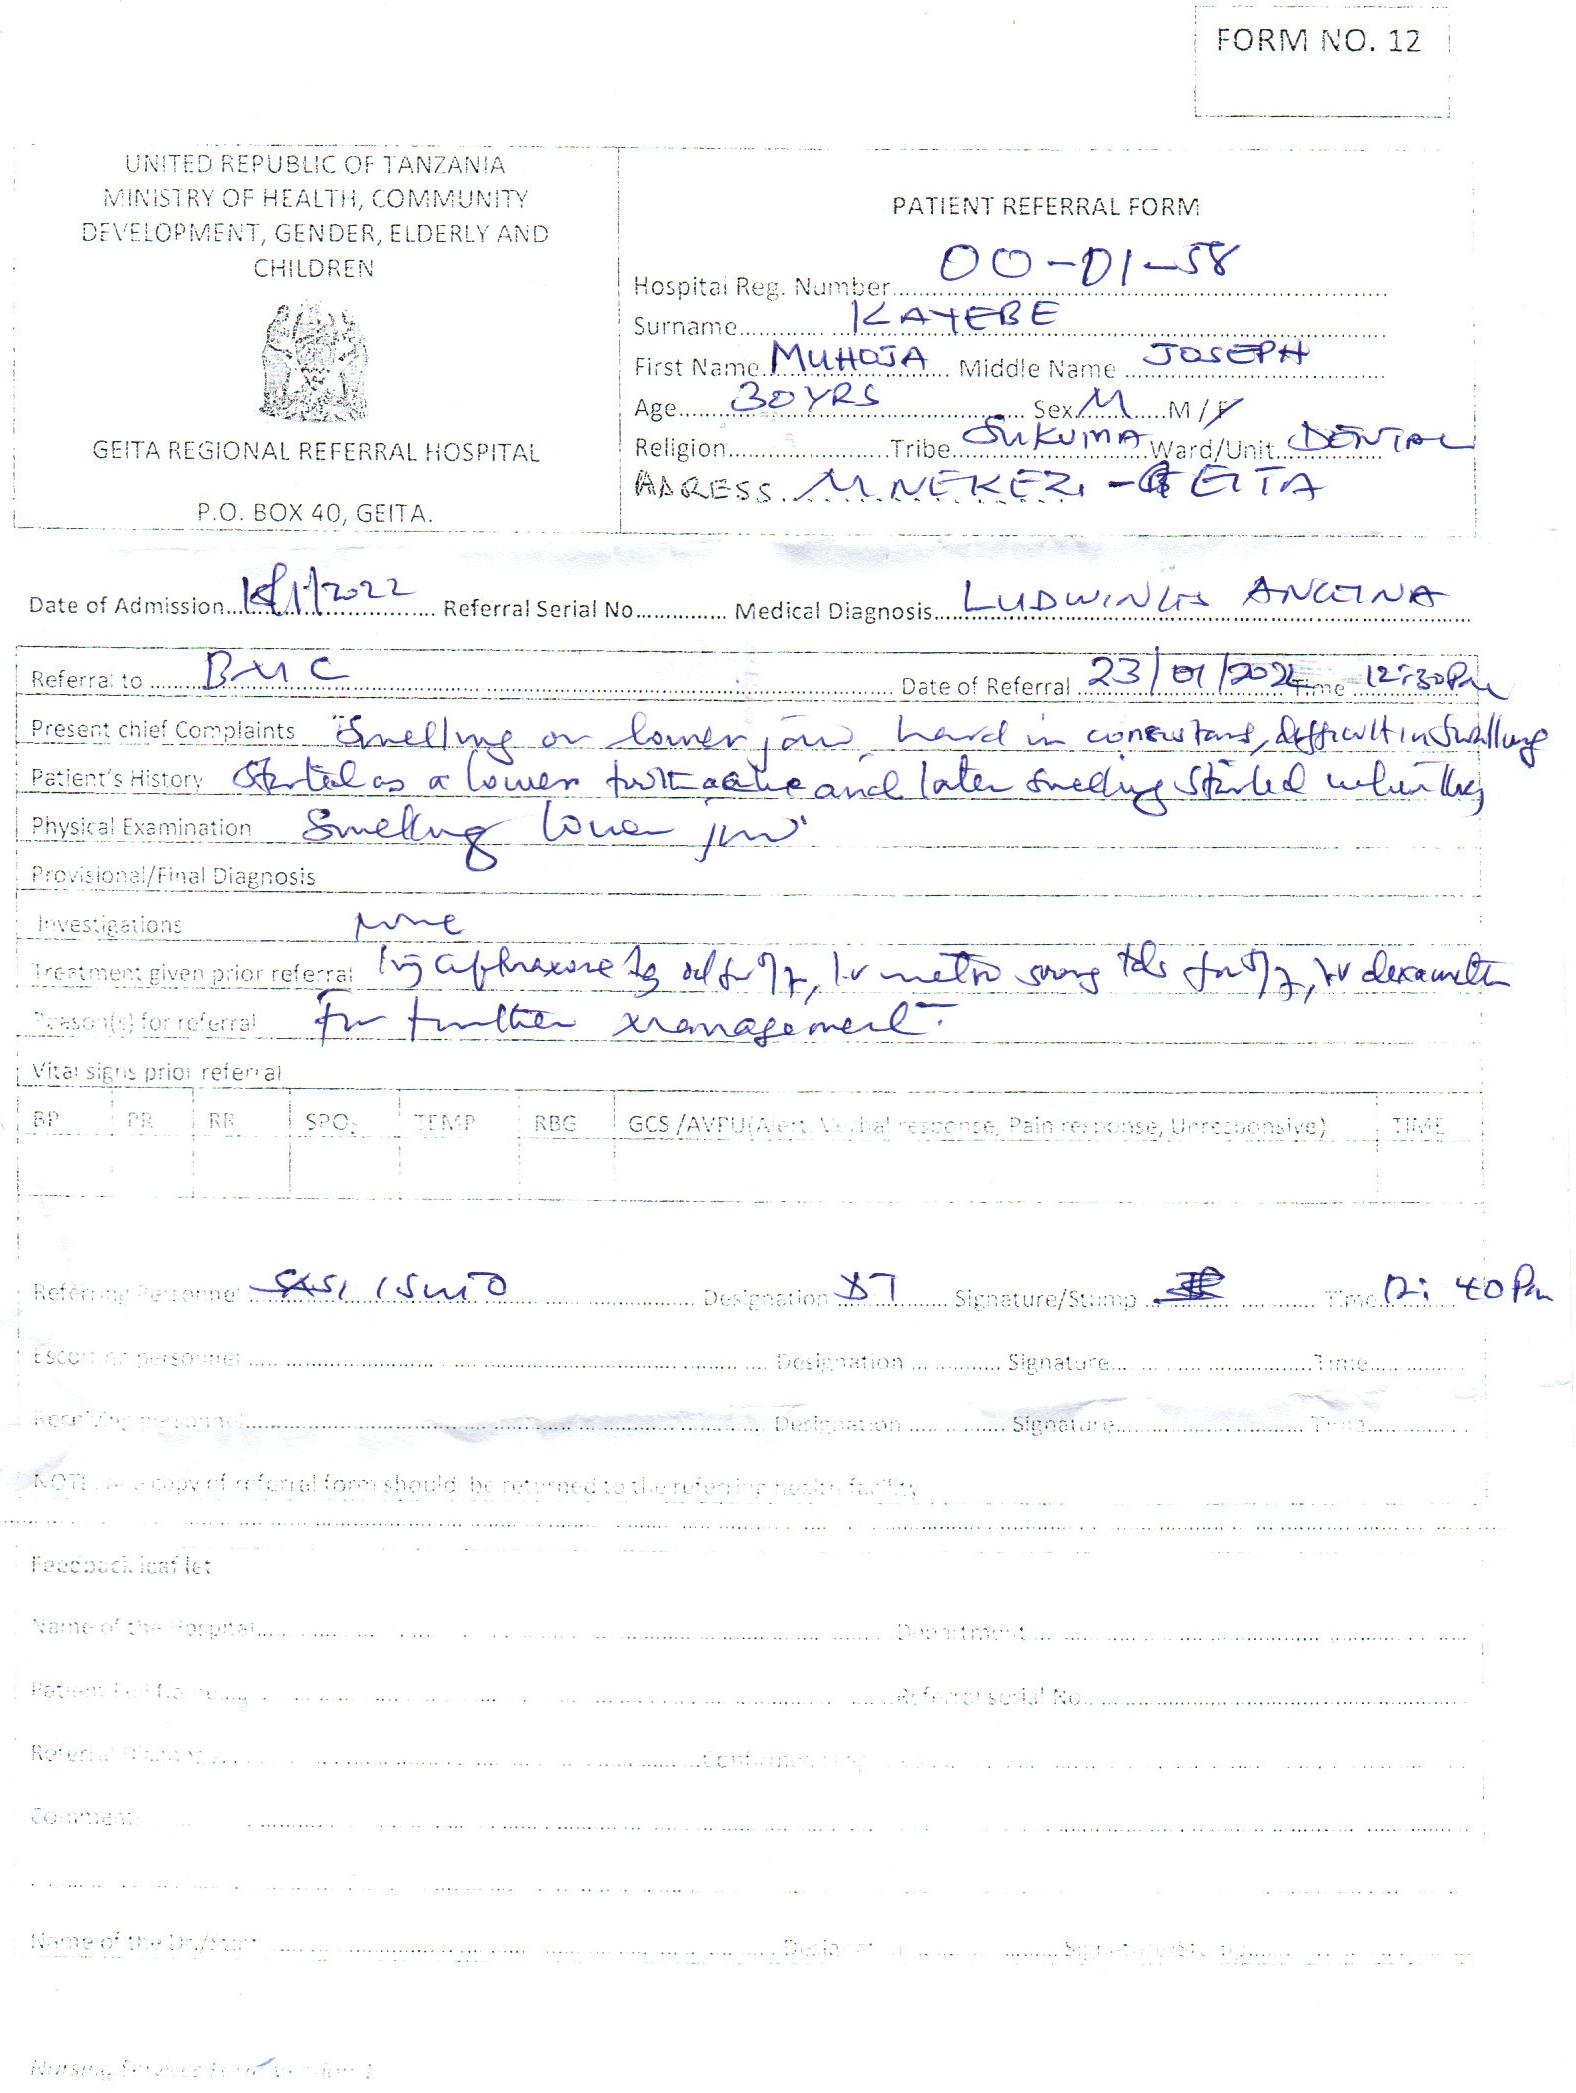 FORM NO. 12
UNITED REPUBLIC OF TANZANIA
MINISTRY OF HEALTH, COMMUNITY
DEVELOPMENT, GENDER, ELDERLY AND
CHILDREN
GEITA REGIONAL REFERRAL HOSPITAL
P.O. BOX 40, GEITA.
PATIENT REFERRAL FORM
Hospital Reg. Number 00-01-58
Surname KAYEBE
First Name MUHOJA Middle Name JOSEPH
Age 30 YRS Sex M M / F
Religion Tribe SUKUMA Ward/Unit DENTAL
ADRESS MNEKEZI - GEITA
Date of Admission /1/2022 Referral Serial No. Medical Diagnosis LUDWINGS ANGINA
Referral to BMC Date of Referral 23/01/2022 Time 12:30 Pm
Present chief Complaints Swelling on lower jaw, hard in, difficult in
Patient's History Started as a lower and later swelling started when
Physical Examination Swelling lower jaw
Provisional/Final Diagnosis
Investigations None
Treatment given prior referral Inj 1g for 5/7, I.v metro 500mg tds for 5/7, I.v
Reason(s) for referral For further management.
Vital signs prior referral
BP PR RR SPO2 TEMP RBG GCS /AVPU(Alert, Verbal response, Pain response, Unresponsive) TIME
Referring Personnel Designation DT Signature/Stump Time 12:40 Pm
Escorting personnel Designation Signature Time
Receiving personnel Designation Signature Time
NOTE: copy of referral form should be returned to the referring health facility
Feedback leaflet
Name of the Hospital Department
Referral serial No.
Referral
Comment
Name of the